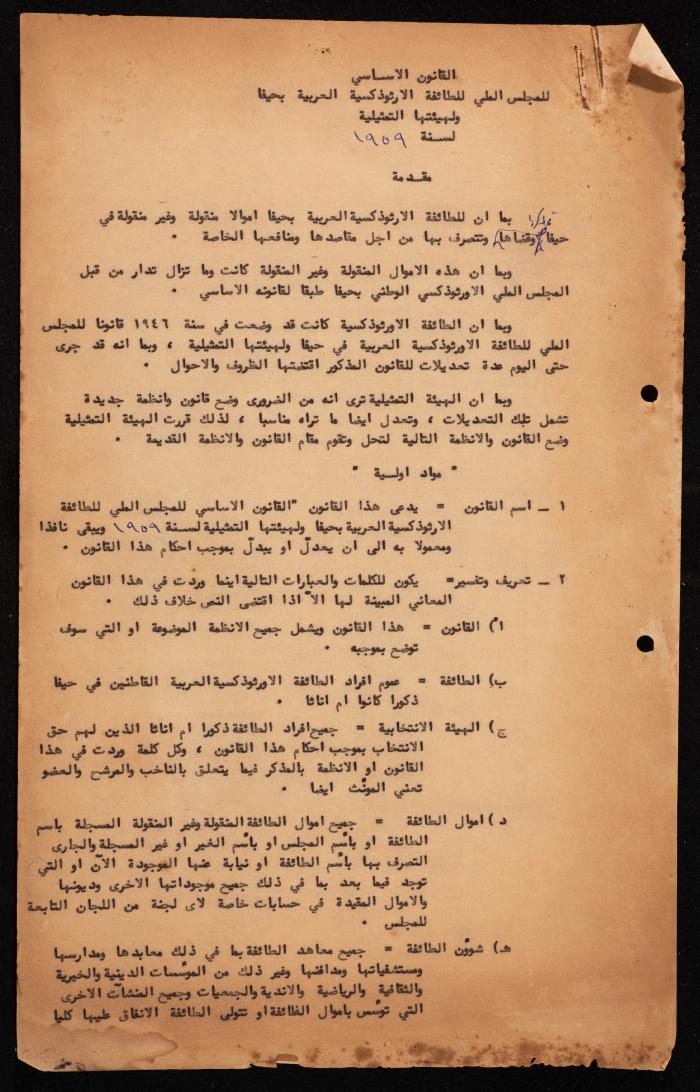 القانون الاساسي
للمجلس الملي للطائفة الارثوذكسية العربية بحيفا
ولهيئتها التمثيلية
لسنة ١٩٥٩
مقدمة
بما ان للطائفة الارثوذكسية العربية بحيفا اموالا منقولة وغير منقولة في
حيفا وقضاها وتتصرف بها من اجل مقاصدها ومنافعها الخاصة ٠
وبما ان هذه الاموال المنقولة وغير المنقولة كانت وما تزال تدار من قبل
المجلس الملي الاورثوذكسي الوطني بحيفا طبقا لقانونه الاساسي ٠
وبما ان الطائفة الاورثوذكسية كانت قد وضعت في سنة ١٩٤٦ قانونا للمجلس
الملي للطائفة الاورثوذكسية العربية في حيفا ولهيئتها التمثيلية ، وبما انه قد جرى
حتى اليوم عدة تعديلات للقانون المذكور اقتضتها الظروف والاحوال ٠
وبما ان الهيئة التمثيلية ترى انه من الضرورى وضع قانون وانظمة جديدة
تشمل تلك التعديلات ، وتعدل ايضا ما تراه مناسبا ، لذلك قررت الهيئة التمثيلية
وضع القانون والانظمة التالية لتحل وتقوم مقام القانون والانظمة القديمة ٠
" مواد اولية "
١ ـ اسم القانون = يدعى هذا القانون "القانون الاساسي للمجلس الملي للطائفة
الارثوذكسية العربية بحيفا ولهيئتها التمثيلية لسنة ١٩٥٩ ويبقى نافذا
ومعمولا به الى ان يعدلّ او يبدلّ بموجب احكام هذا القانون ٠
٢ ـ تعريف وتفسير= يكون للكلمات والعبارات التالية اينما وردت في هذا القانون
المعاني المبينة لها الاّ اذا اقتضى النص خلاف ذلك ٠
ا) القانون = هذا القانون ويشمل جميع الانظمة الموضوعة او التي سوف
توضع بموجبه ٠
ب) الطائفة = عموم افراد الطائفة الاورثوذكسية العربية القاطنين في حيفا
ذكورا كانوا ام اناثا ٠
ج) الهيئة الانتخابية = جميع افراد الطائفة ذكورا ام اناثا الذين لهم حق
الانتخاب بموجب احكام هذا القانون ، وكل كلمة وردت في هذا
القانون او الانظمة بالمذكر فيما يتعلق بالناخب والمرشح والعضو
تعني المونّث ايضا ٠
د ) اموال الطائفة = جميع اموال الطائفة المنقولة وغير المنقولة المسجلة باسم
الطائفة او باسم المجلس او باسم الخير او غير المسجلة والجارى
التصرف بها باسم الطائفة او نيابة عنها الموجودة الآن او التي
توجد فيما بعد بما في ذلك جميع موجوداتها الاخرى وديونها
والاموال المقيدة في حسابات خاصة لاى لجنة من اللجان التابعة
للمجلس ٠
هـ) شوؤن الطائفة = جميع معاهد الطائفة بما في ذلك معابدها ومدارسها
ومستشفياتها ومدافنها وغير ذلك من الموسّسات الدينية والخيرية
والثقافية والرياضية والاندية والجمعيات وجميع المنشآت الاخرى
التي توسّس باموال الطائفة او تتولى الطائفة الانفاق عليها كليا